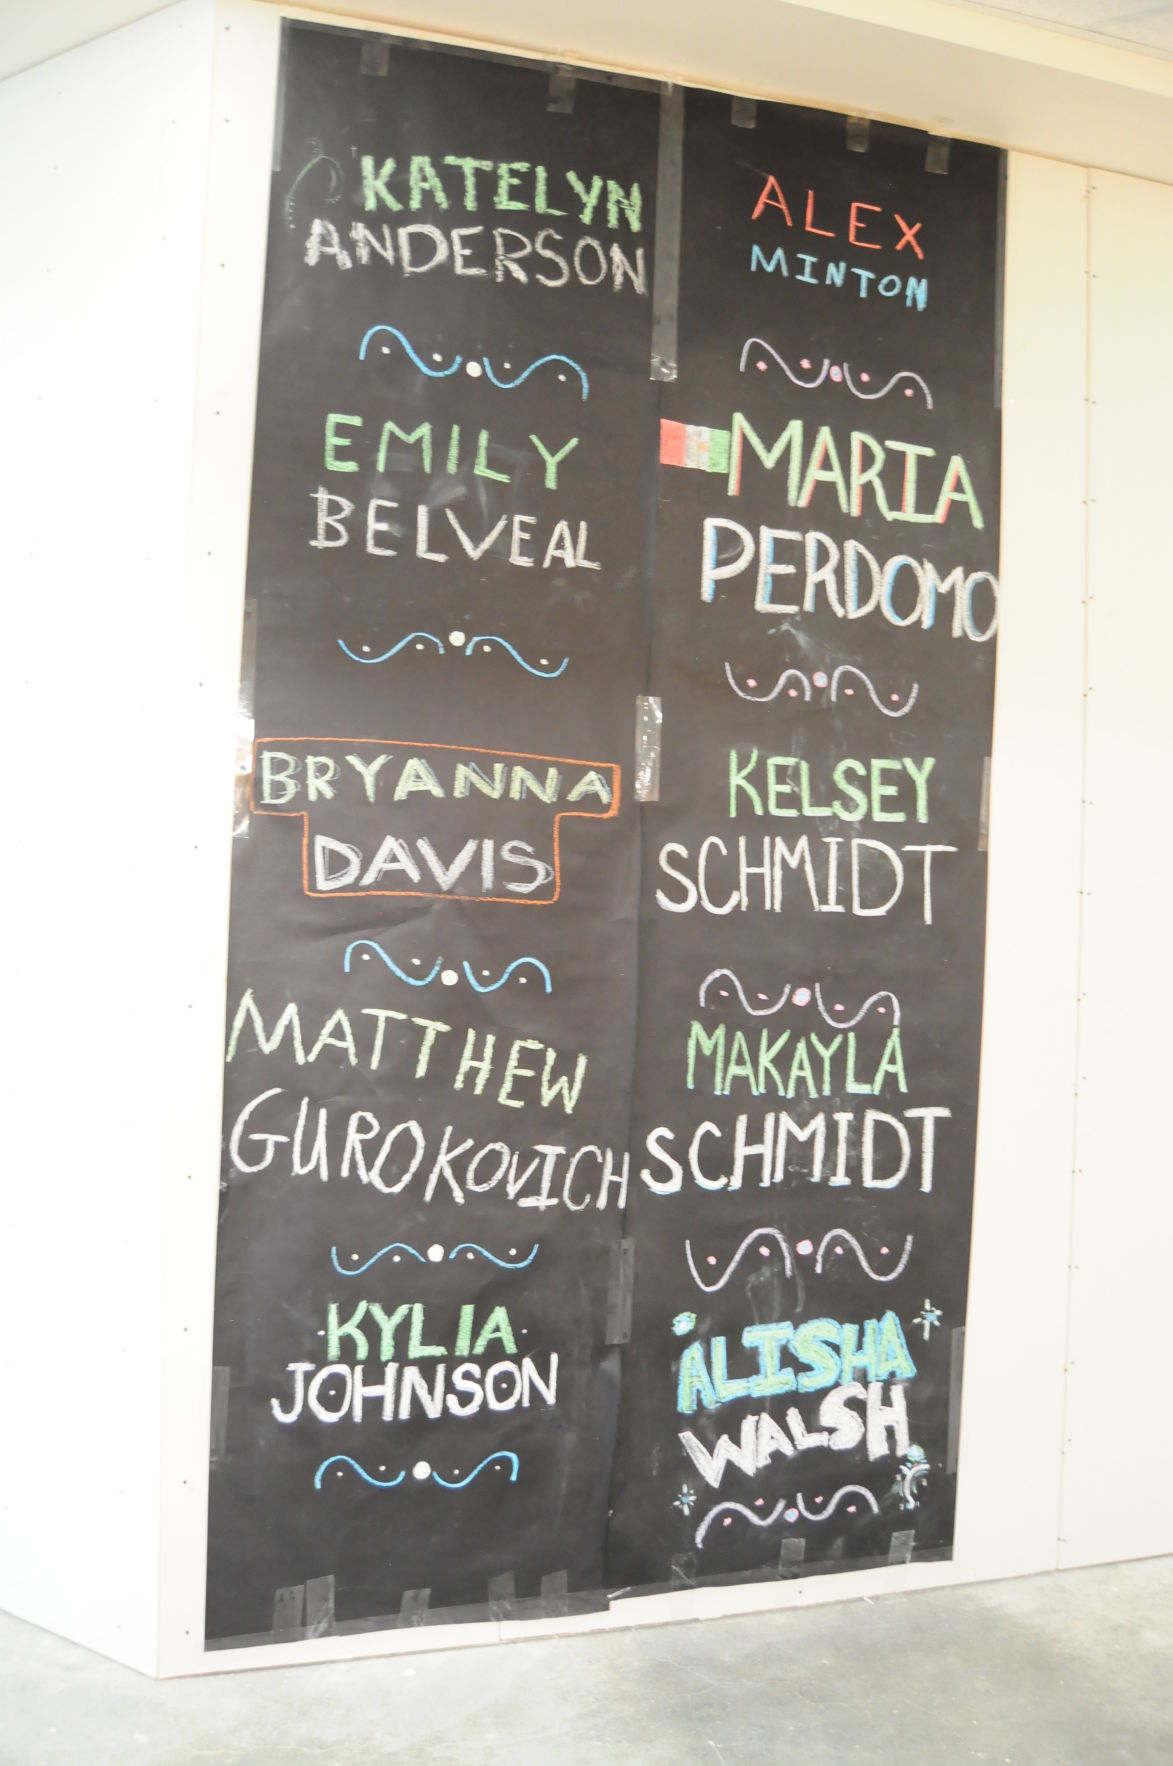 KATELYN
ANDERSON
EMILY
BELVEAL
BRYANNA
DAVIS
MATTHEW
GUROKOVICH
KYLIA
JOHNSON
ALEX
MINTON
MARIA
PERDOMO
KELSEY
SCHMIDT
MAKAYLA
SCHMIDT
ALISHA
WALSH